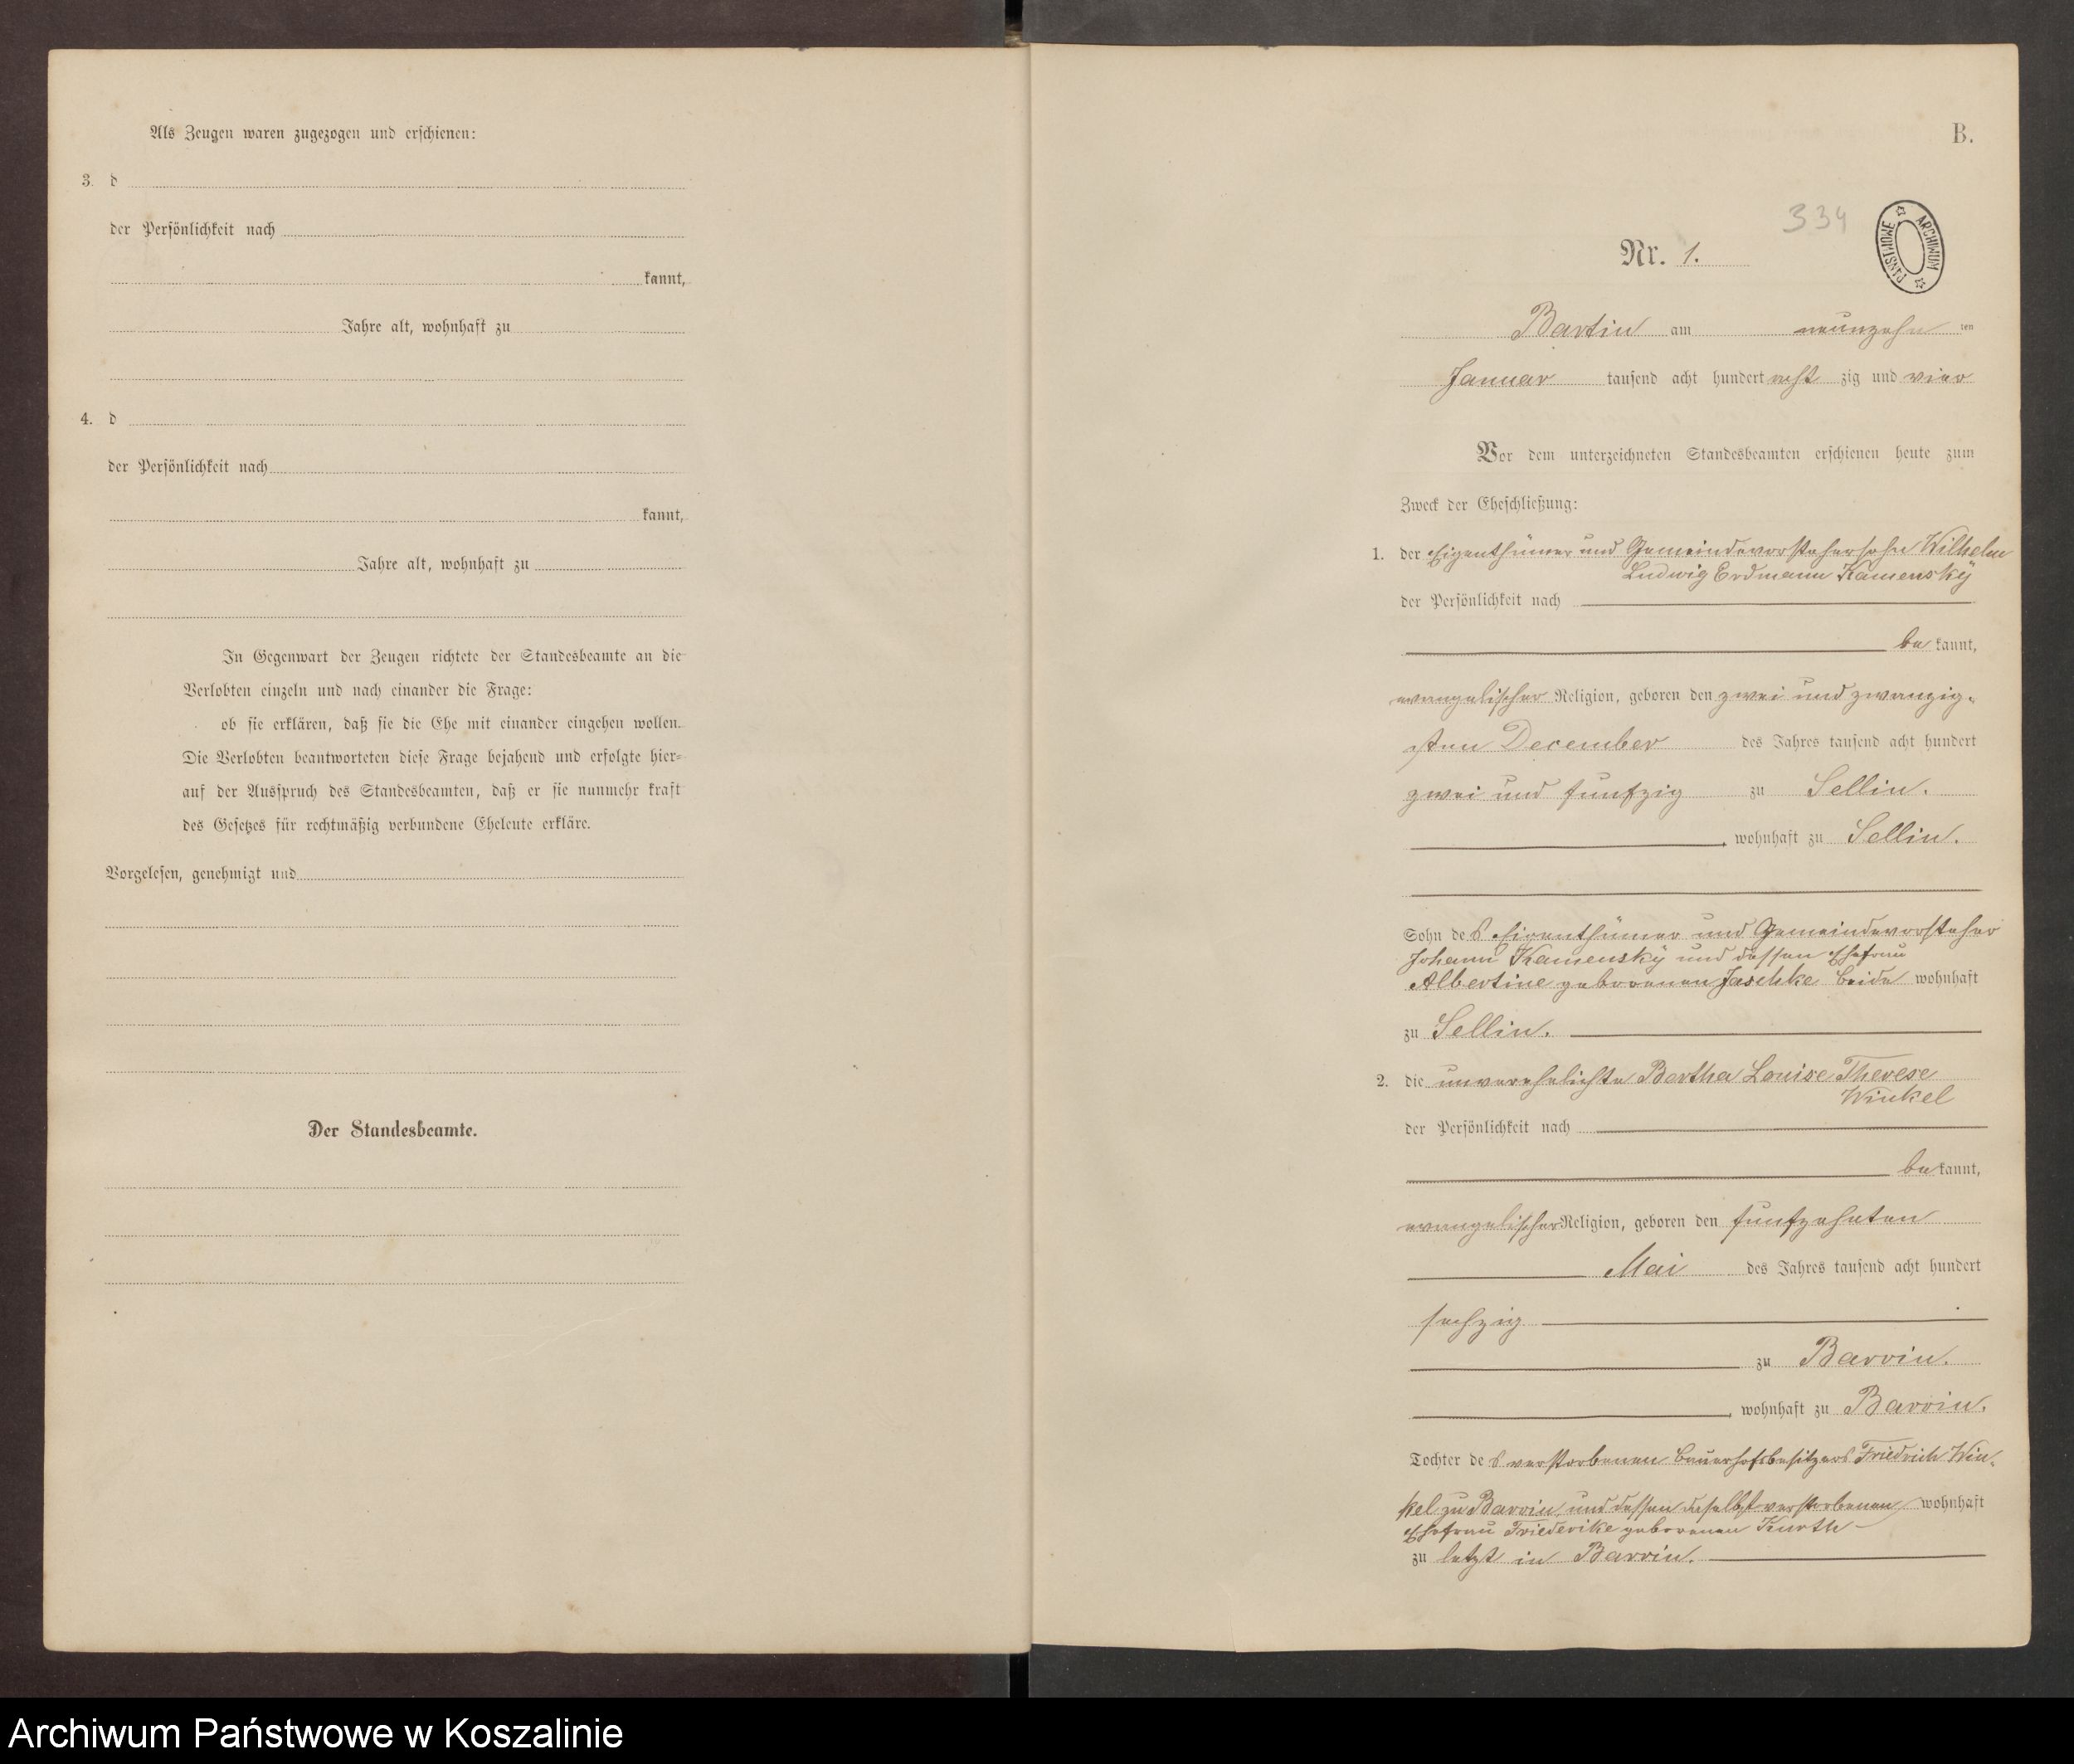 Als Zeugen waren zugezogen und erschienen:
3. d
der Persönlichkeit nach
kannt,
Jahre alt, wohnhaft zu
4. d
der Persönlichkeit nach
kannt,
Jahre alt, wohnhaft zu
In Gegenwart der Zeugen richtete der Standesbeamte an die
Verlobten einzeln und nach einander die Frage:
ob sie erklären, daß sie die Ehe mit einander eingehen wollen.
Die Verlobten beantworteten diese Frage bejahend und erfolgte hier-
auf der Ausspruch des Standesbeamten, daß er sie nunmehr kraft
des Gesetzes für rechtmäßig verbundene Eheleute erkläre.
Vorgelesen, genehmigt und
Der Standesbeamte.
B.
334
ARCHIWUM PAŃSTWOWE
Nr. 1.
Bartin am neunzehn ten
Januar tausend acht hundert acht zig und vier
Vor dem unterzeichneten Standesbeamten erschienen heute zum
Zweck der Eheschließung:
1. der Eigenthümer und Gemeindevorstehersohn Wilhelm
Ludwig Erdmann Kamensky
der Persönlichkeit nach
be kannt,
evangelischer Religion, geboren den zwei und zwanzig-
sten December des Jahres tausend acht hundert
zwei und funfzig zu Sellin.
, wohnhaft zu Sellin.
Sohn des Eigenthümer und Gemeindevorsteher
Johann Kamensky und dessen Ehefrau
Albertine geborenen Jaschke beide wohnhaft
zu Sellin.
2. die unverehelichte Bertha Louise Therese
Winkel
der Persönlichkeit nach
be kannt,
evangelischer Religion, geboren den funfzehnten
Mai des Jahres tausend acht hundert
sechzig
zu Barvin.
, wohnhaft zu Barvin.
Tochter des verstorbenen Bauerhofsbesitzers Friedrich Win-
kel zu Barvin und dessen daselbst verstorbenen wohnhaft
Ehefrau Friederike geborenen Kurth
zu letzt in Barvin.
Archiwum Państwowe w Koszalinie